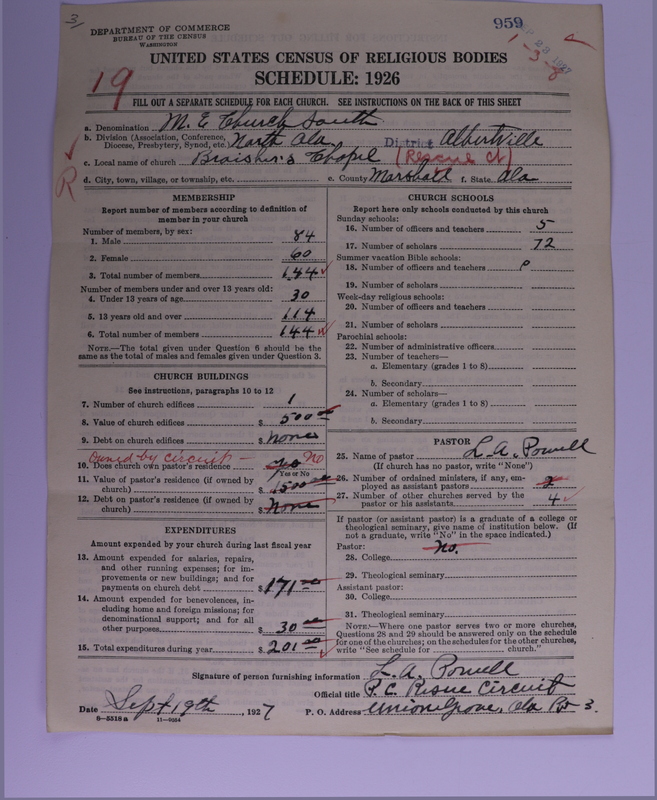 3
DEPARTMENT OF COMMERCE
BUREAU OF THE CENSUS
WASHINGTON
959
SEP 23 1927
1-3-8
UNITED STATES CENSUS OF RELIGIOUS BODIES
SCHEDULE: 1926
19
FILL OUT A SEPARATE SCHEDULE FOR EACH CHURCH. SEE INSTRUCTIONS ON THE BACK OF THIS SHEET
a. Denomination M. E Church South
b. Division (Association, Conference, Diocese, Presbytery, Synod, etc.) North Ala. District Albertville
c. Local name of church Chapel (Rescue Ct)
R
d. City, town, village, or township, etc. e. County Marshall f. State Ala
MEMBERSHIP
Report number of members according to definition of
member in your church
Number of members, by sex:
1. Male 84
2. Female 60
3. Total number of members 144
Number of members under and over 13 years old:
4. Under 13 years of age 30
5. 13 years old and over 114
6. Total number of members 144
NOTE.—The total given under Question 6 should be the
same as the total of males and females given under Question 3.
CHURCH BUILDINGS
See instructions, paragraphs 10 to 12
7. Number of church edifices 1
8. Value of church edifices $ 500 00
9. Debt on church edifices $ None
Owned by circuit —
10. Does church own pastor's residence No
Yes or No
11. Value of pastor's residence (if owned by
church) $ 1500 00
12. Debt on pastor's residence (if owned by
church) $ None
EXPENDITURES
Amount expended by your church during last fiscal year
13. Amount expended for salaries, repairs,
and other running expenses; for im-
provements or new buildings; and for
payments on church debt $ 171 00
14. Amount expended for benevolences, in-
cluding home and foreign missions; for
denominational support; and for all
other purposes $ 30 00
15. Total expenditures during year $ 201 00
CHURCH SCHOOLS
Report here only schools conducted by this church
Sunday schools:
16. Number of officers and teachers 5
17. Number of scholars 72
Summer vacation Bible schools:
18. Number of officers and teachers
19. Number of scholars
Week-day religious schools:
20. Number of officers and teachers
21. Number of scholars
Parochial schools:
22. Number of administrative officers
23. Number of teachers—
a. Elementary (grades 1 to 8)
b. Secondary
24. Number of scholars—
a. Elementary (grades 1 to 8)
b. Secondary
PASTOR
25. Name of pastor L. A. Powell
(If church has no pastor, write "None")
26. Number of ordained ministers, if any, em-
ployed as assistant pastors
27. Number of other churches served by the
pastor or his assistants 4
If pastor (or assistant pastor) is a graduate of a college or
theological seminary, give name of institution below. (If
not a graduate, write "No" in the space indicated.)
Pastor: No.
28. College
29. Theological seminary
Assistant pastor:
30. College
31. Theological seminary
NOTE.—Where one pastor serves two or more churches,
Questions 28 and 29 should be answered only on the schedule
for one of the churches; on the schedules for the other churches,
write "See schedule for church."
Signature of person furnishing information L. A. Powell
Official title P. C. Circuit
Date Sept 19th, 1927 P. O. Address Union Grove, Ala Rt 3.
8—5518a 11—9884